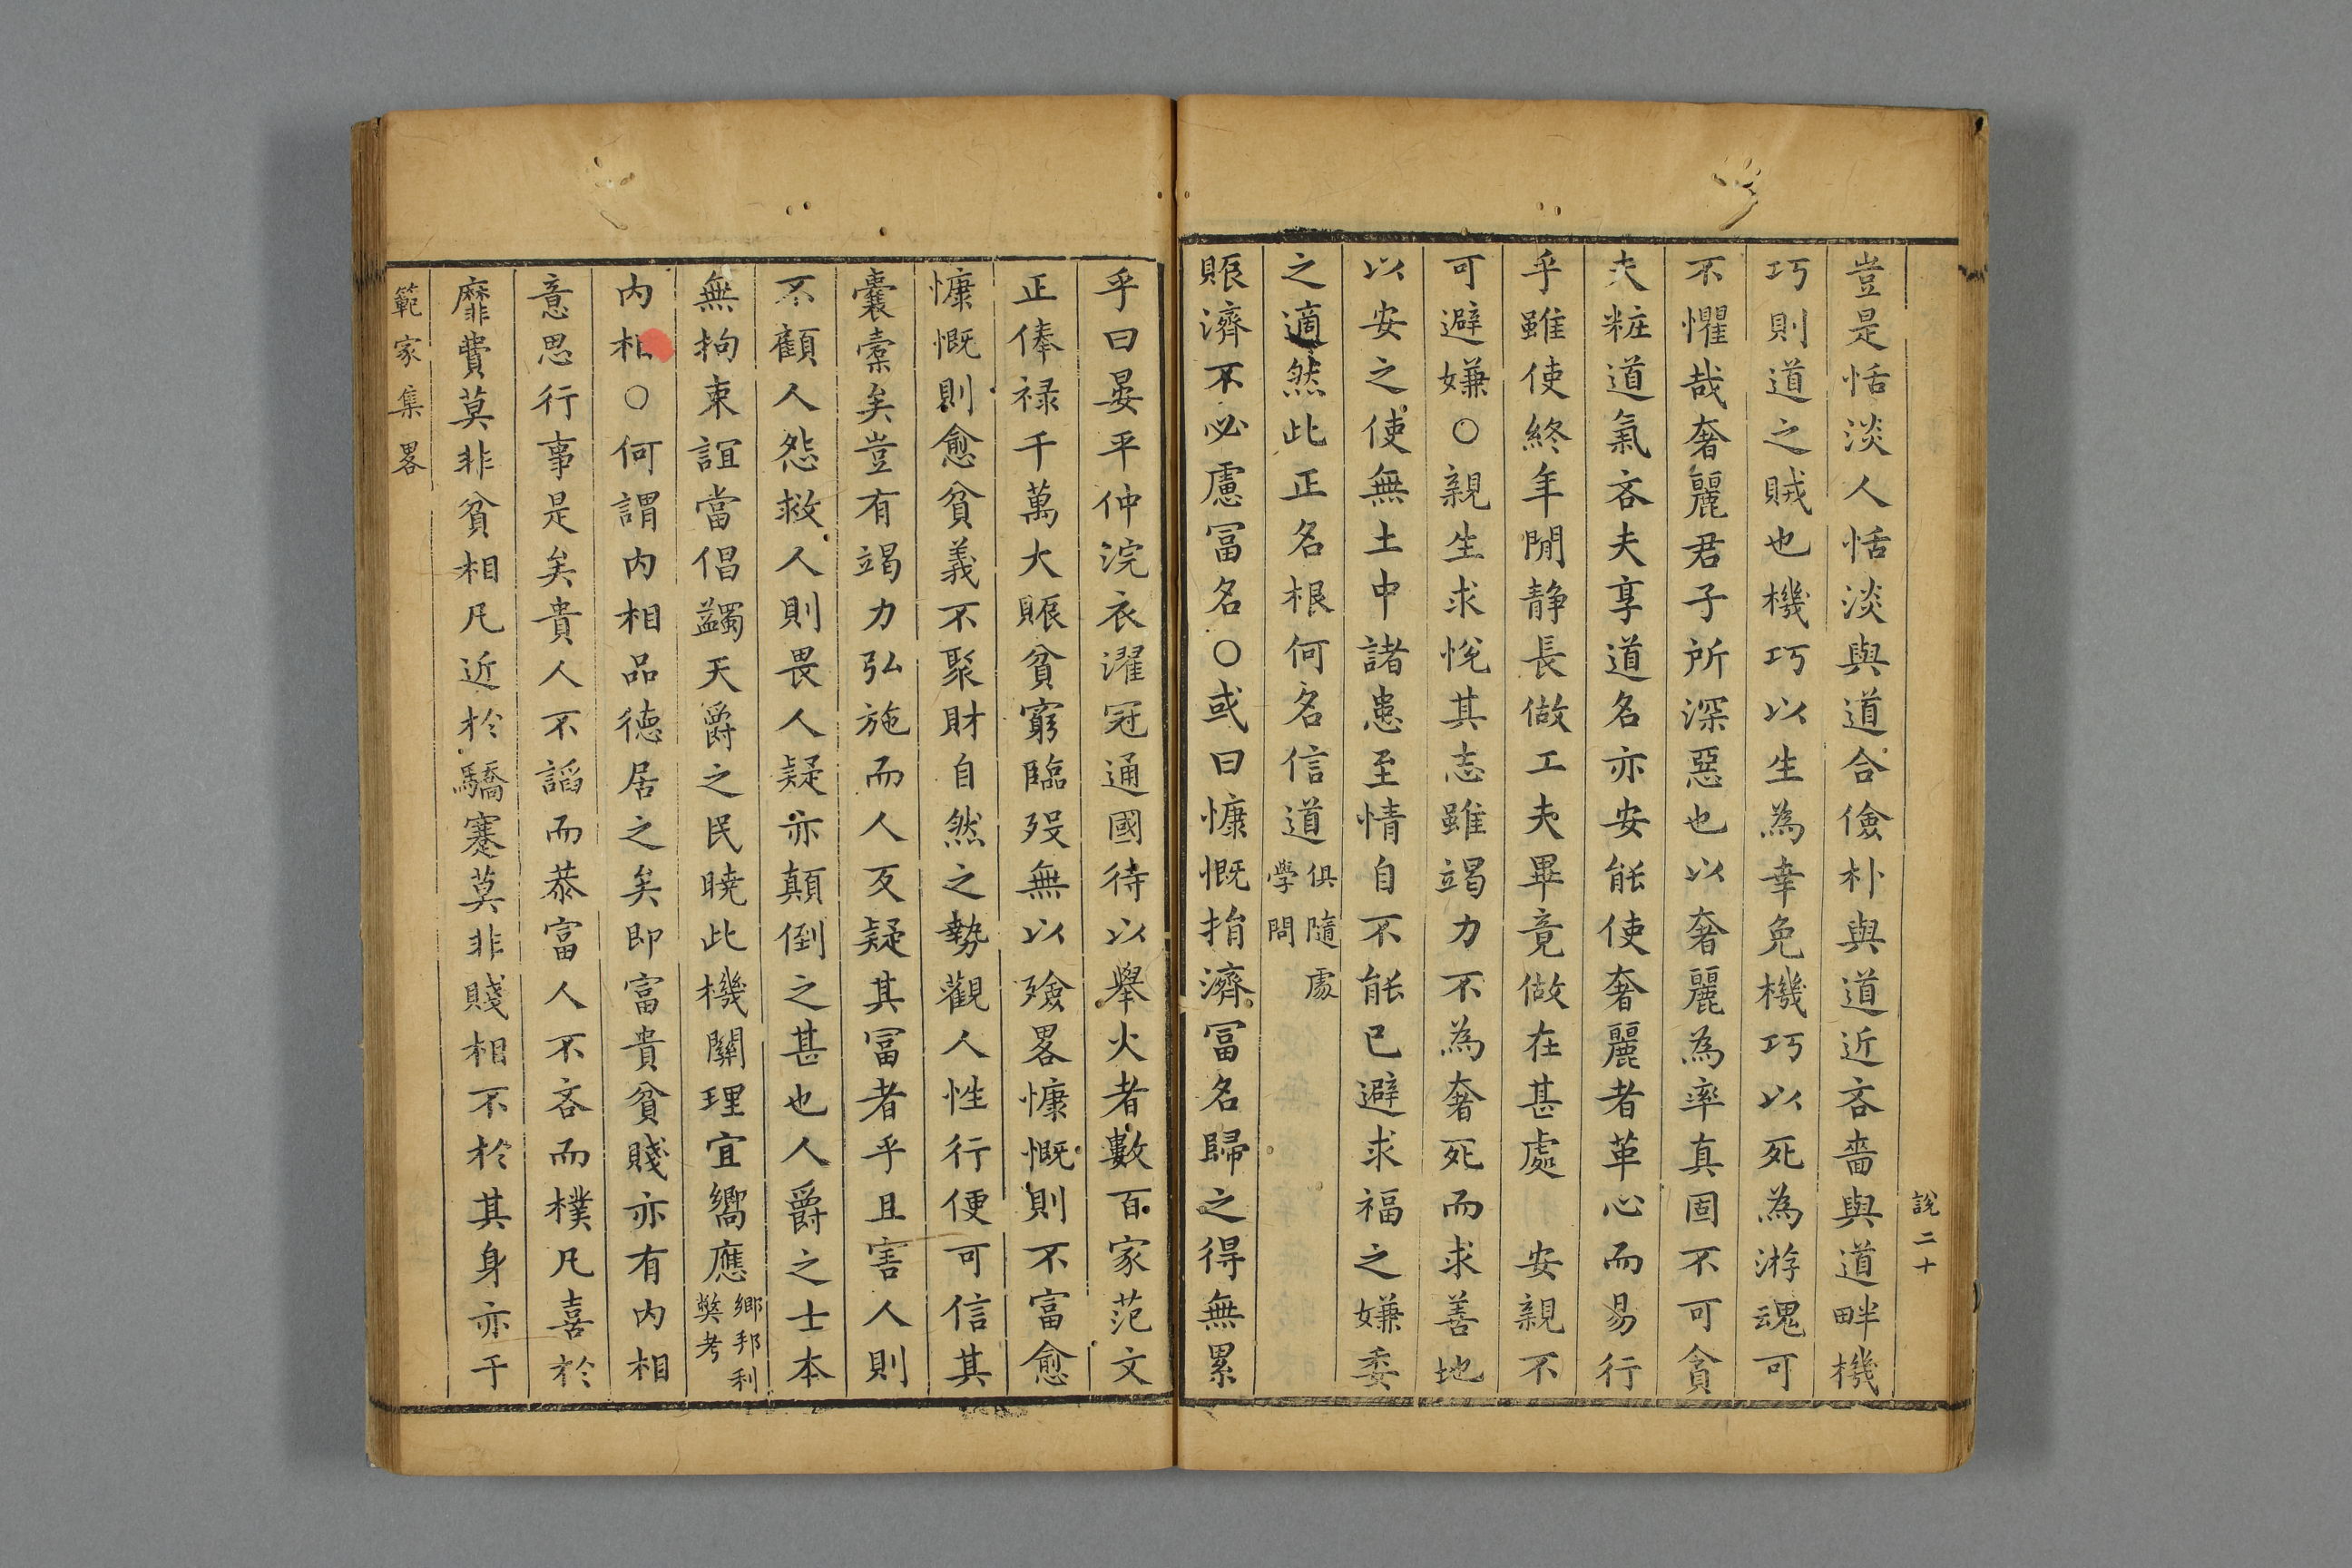 說二十
豈是恬淡人恬淡與道合儉朴與道近吝嗇與道畔機
巧則道之賊也機巧以生為幸免機巧以死為游魂可
不懼哉奢麗君子所深惡也以奢麗為率真固不可貪
夫粧道氣吝夫享道名亦安能使奢麗者革心而易行
乎雖使終年閒静長做工夫畢竟做在甚處 安親不
可避嫌○親生求悅其志雖竭力不為奢死而求善地
以安之使無土中諸患至情自不能已避求福之嫌委
之適然此正名根何名信道俱隨處
學問
賑濟不必慮冨名○或曰慷慨捐濟冨名歸之得無累
乎曰晏平仲浣衣濯冠通國待以舉火者數百家范文
正俸禄千萬大賑貧窮臨歿無以殮畧慷慨則不富愈
慷慨則愈貧義不聚財自然之勢觀人性行便可信其
囊橐矣豈有竭力弘施而人反疑其冨者乎且害人則
不顧人怨救人則畏人疑亦顛倒之甚也人爵之士本
無拘束誼當倡蠲天爵之民曉此機關理宜嚮應鄉邦利
獘考
内相○何謂内相品德居之矣即富貴貧賤亦有内相
意思行事是矣貴人不謟而恭富人不吝而樸凡喜於
靡費莫非貧相凡近於驕蹇莫非賤相不於其身亦于
範家集畧